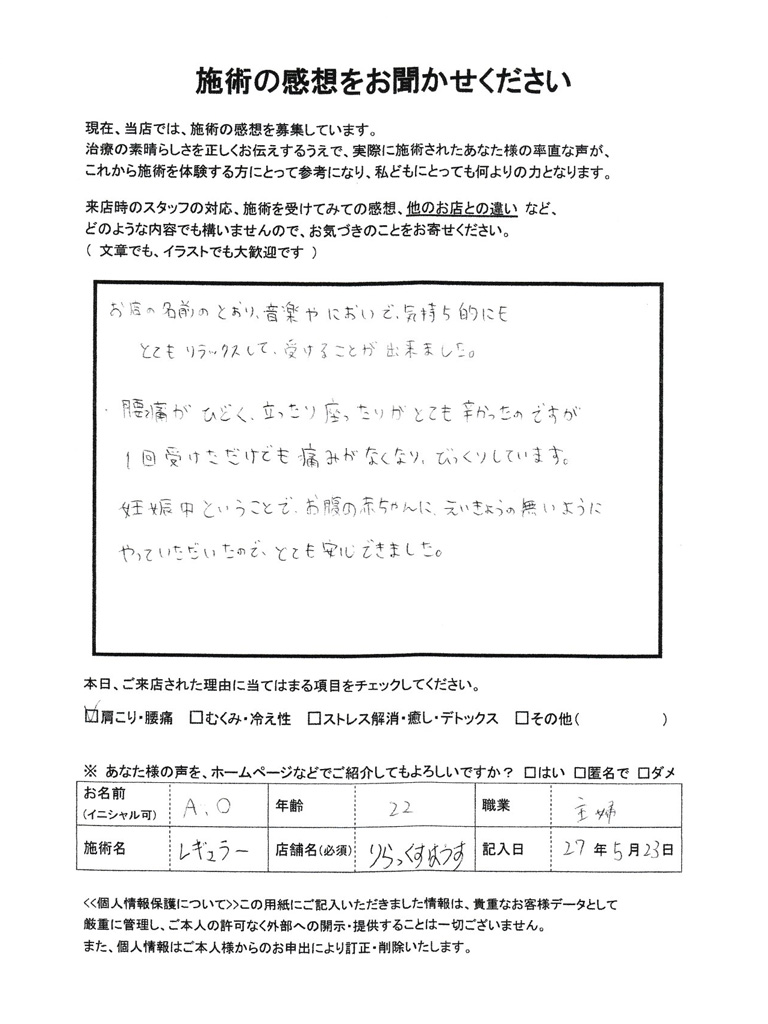 施術の感想をお聞かせください
現在、当店では、施術の感想を募集しています。
治療の素晴らしさを正しくお伝えするうえで、実際に施術されたあなた様の率直な声が、
これから施術を体験する方にとって参考になり、私どもにとっても何よりの力となります。
来店時のスタッフの対応、施術を受けてみての感想、他のお店との違い など、
どのような内容でも構いませんので、お気づきのことをお寄せください。
( 文章でも、イラストでも大歓迎です )
お店の名前のとおり、音楽やにおいで、気持ち的にも
とてもリラックスして、受けることが出来ました。
・腰痛がひどく、立ったり座ったりがとても辛かったのですが
1回受けただけでも痛みがなくなり、びっくりしています。
妊娠中ということで、お腹の赤ちゃんに、えいきょうの無いように
やっていただいたので、とても安心できました。
本日、ご来店された理由に当てはまる項目をチェックしてください。
☑肩こり・腰痛 □むくみ・冷え性 □ストレス解消・癒し・デトックス □その他( )
※ あなた様の声を、ホームページなどでご紹介してもよろしいですか? □はい □匿名で □ダメ
お名前 (イニシャル可) A.O 年齢 22 職業 主婦
施術名 レギュラー 店舗名(必須) りらっくすはうす 記入日 27年5月23日
<<個人情報保護について>>この用紙にご記入いただきました情報は、貴重なお客様データとして
厳重に管理し、ご本人の許可なく外部への開示・提供することは一切ございません。
また、個人情報はご本人様からのお申出により訂正・削除いたします。